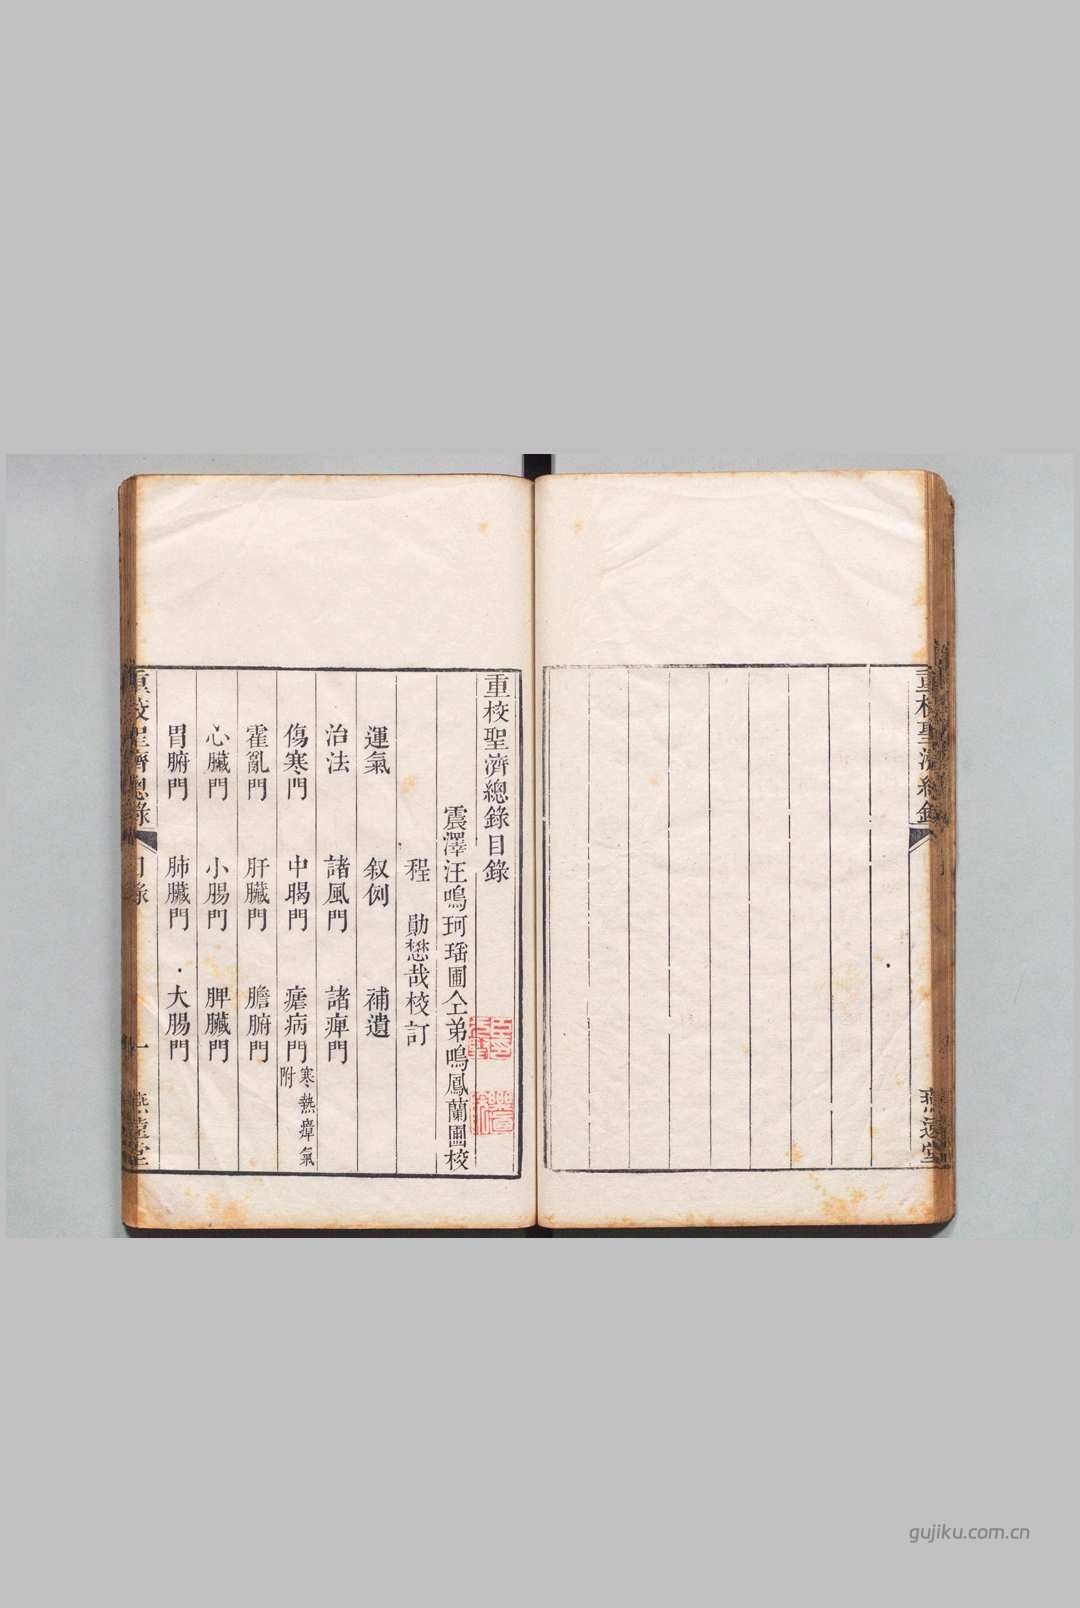 重校聖濟總錄
燕遠堂
重校聖濟總錄目錄
震澤汪鳴珂瑶圃仝弟鳴鳳蘭圃校
程 勛懋哉校訂
運氣 叙例 補遺
治法 諸風門 諸痺門
傷寒門 中暍門 瘧病門 寒熱瘴氣附
霍亂門 肝臟門 膽腑門
心臟門 小腸門 脾臟門
胃腑門 肺臟門 大腸門
重校聖濟總錄 目錄 一 燕遠堂
gujiku.com.cn